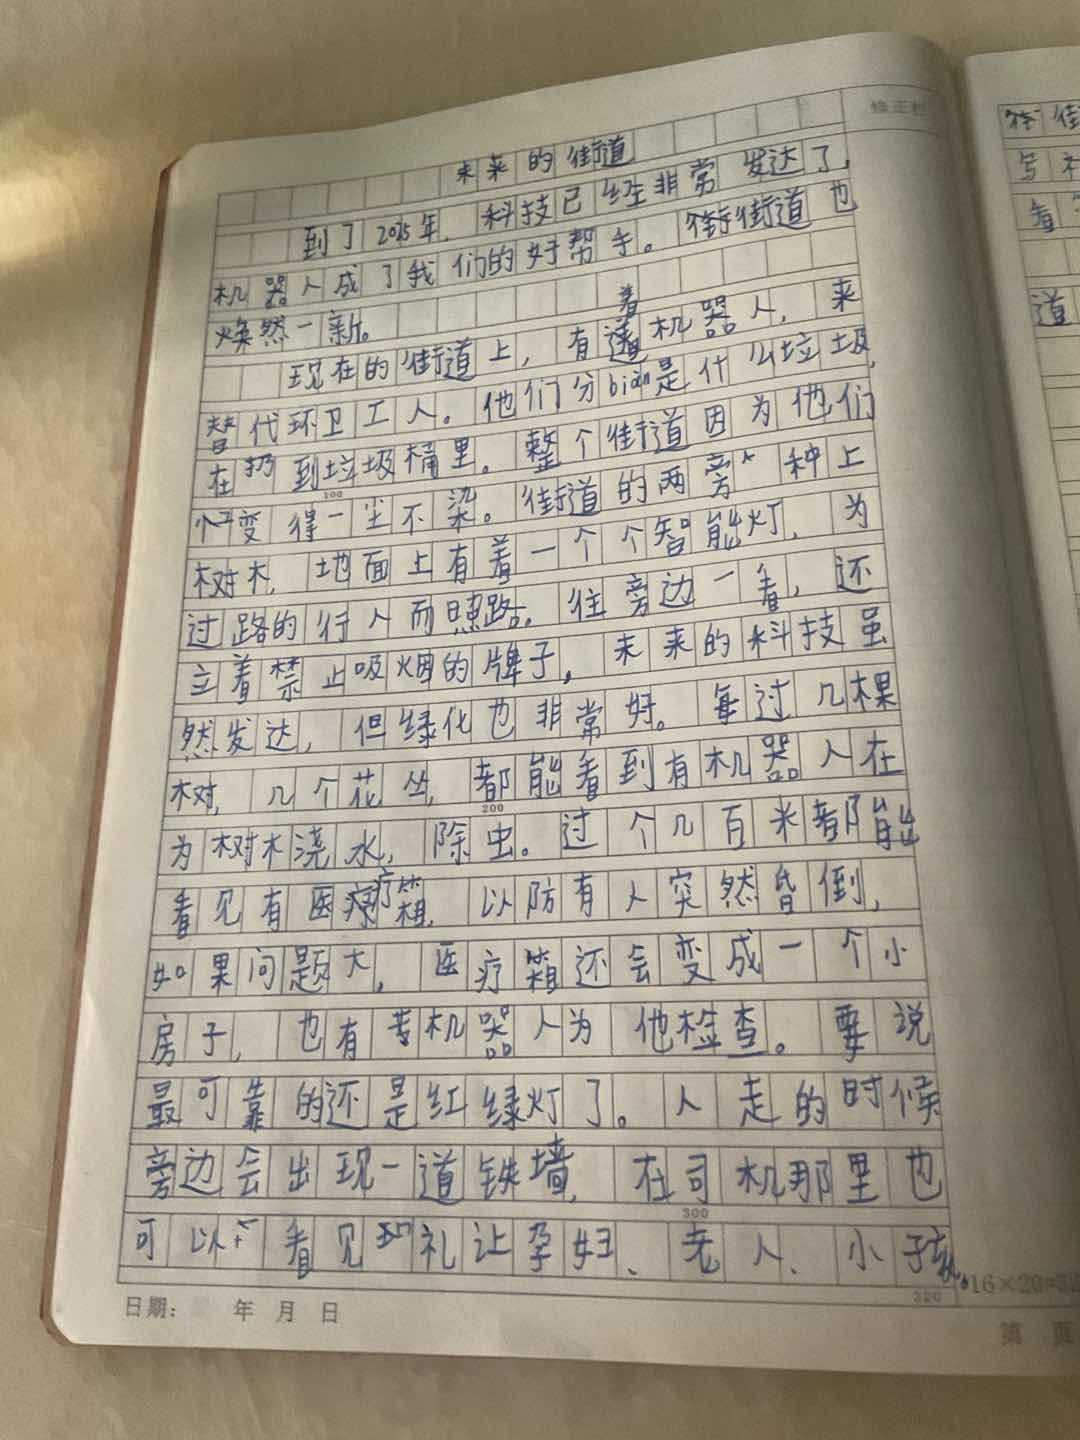 修正栏
未来的街道
到了2025年，科技已经非常发达了，
机器人成了我们的好帮手。街道也
焕然一新。
现在的街道上，有着机器人，来
替代环卫工人。他们分biàn是什么垃圾，
在扔到垃圾桶里。整个街道因为他们
变得一尘不染。街道的两旁种上
树木，地面上有着一个个智能灯，为
过路的行人而照路。往旁边一看，还
立着禁止吸烟的牌子，未来的科技虽
然发达，但绿化也非常好。每过几棵
树，几个花丛，都能看到有机器人在
为树木浇水，除虫。过个几百米都能
看见有医疗箱，以防有人突然昏倒，
如果问题大，医疗箱还会变成一个小
房子，也有专机器人为他检查。要说
最可靠的还是红绿灯了。人走的时候
旁边会出现一道铁墙，在司机那里也
可以看见礼让孕妇、老人、小孩。
100
200
300
320
16×20=32
日期： 年 月 日
第 页
街
写
看
道